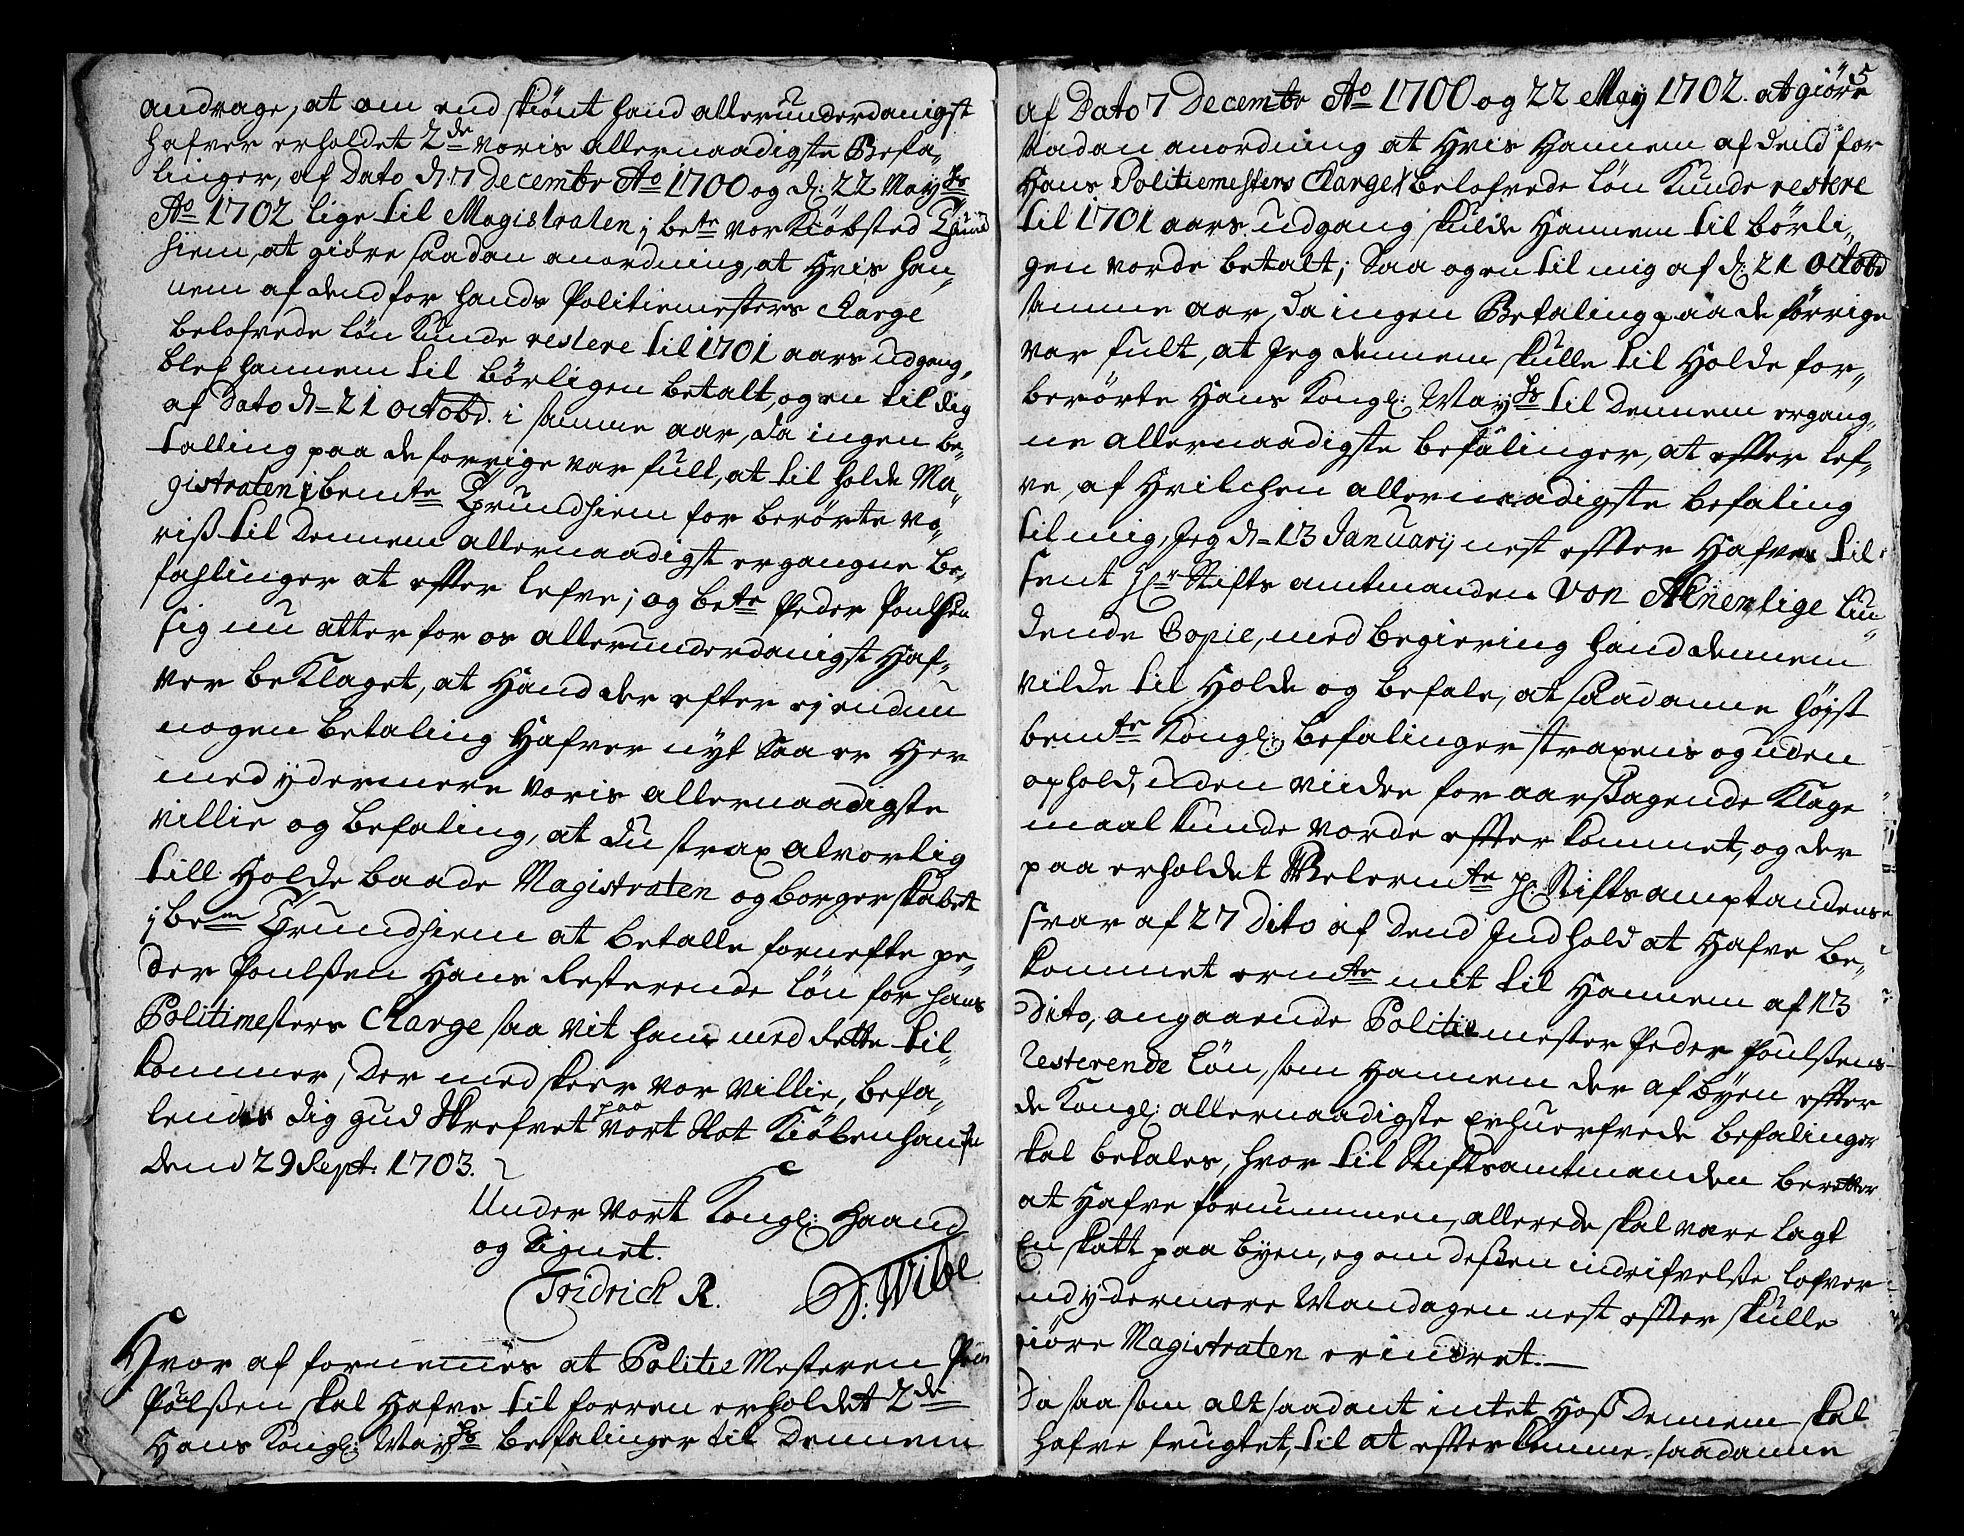 andrage, at om end skiönt hand allerunderdanigst
hafver erholdet 2de voris allernaadigste Befa„
linger, af Dato d: 7 Decembr Ao 1700 og d: 22 Maÿ
Ao 1702 lige til Magistraten i bete vor Kiöbsted Thrund
hiem, at giöre saadan anordning, at hvis han„
nem af dend for hands Politiemesters Charge
belofvede lön kunde restere til 1701 aars udgang,
blef hannem til börligen betalt, og en til dig
af Dato d= 21 octobr. i samme aar, da ingen be„
talling paa de forrige var fult, at til holde Ma„
gistraten i bemte Thrundhiem for berörte vo„
riß til Dennem allernaadigst ergangne be„
fahlinger at efter lefve; og bete Peder Poulsen
sig nu atter for os allerunderdanigst haf„
ver beklaget, at hand der efter ej endnu
nogen betaling hafver nyt Saa er her
med ÿdermere voris allernaadigste
villie og befaling, at du strax alvorlig
till holde baade Magistraten og borgerskabet
i bem Thrundhiem at betalle fornefte pe„
der Poulßen hans Resterende lön for hans
Politimesters Charge saa vit ham med rette til„
kommer, Der med skeer vor villie, befa„
lendes dig gud Skrefvet paa vort Slot Kiöbenhafn
Dend 29 Sept: 1703.
Under vort Kongl: haand
og Signet.
Fridrich R. D: Wibe
Hvor af fornemmes at Politie Mesteren Peder
Pølßen skal hafve til forren erholdet 2de
Hans Kongl: Maÿts befalinger til Dennem
5
af Dato 7 Decembr Ao 1700 og 22 Maÿ 1702. at giöre
saadan anordning at hvis hannem af dend for
Hans Politiemesters Charge belofvede lön kunde restere
til 1701 aars udgang skulde hannem til börli„
gen vorde betalt; Saa og en til mig af d: 21 octobr
samme aar, da ingen Betaling paa de förrige
var fult, at Jeg dennem skulle til holde for„
berörte Hans Kongl: Maÿts til Dennem ergang„
ne allernaadigste befalinger, at efter lef„
ve, af hvilchen allernaadigste befaling
til mig, Jeg d= 13 Januarÿ nest effter hafver til
sent Hr Stiftsamtmanden von Ahnen lige lÿ„
dende Copie, med begiering hand dennem
vilde til holde og befale, at saadanne höjst
bemte Kongl: befalinger straxens og uden
ophold, uden viidre foraarßagende Klage
maal kunde vorde effter kommet, og der
paa erholdet Welermte Hr. Stiftsamptandens
svar af 27 Dito af Dend Jndhold at hafve be„
kommet ermte mit til hannem af 13
Dito, angaaende Politiemester Peder Poulßens
resterende lön, som hannem der af byen effter
de Kongl: allernaadigste Erhuerfvede befalinger
skal betales, hvor til Stiftsamtmanden beretter
at hafve fornummen, allerede skal være lagt
En skatt paa byen, og om deßen indrifvelße lofver
end ÿdermere Mandagen nest effter skulle
giöre Magistraten erindret.—
Da saa som alt saadant intet hoß Dennem skal
hafve frugtet, til at effter komme saadanne